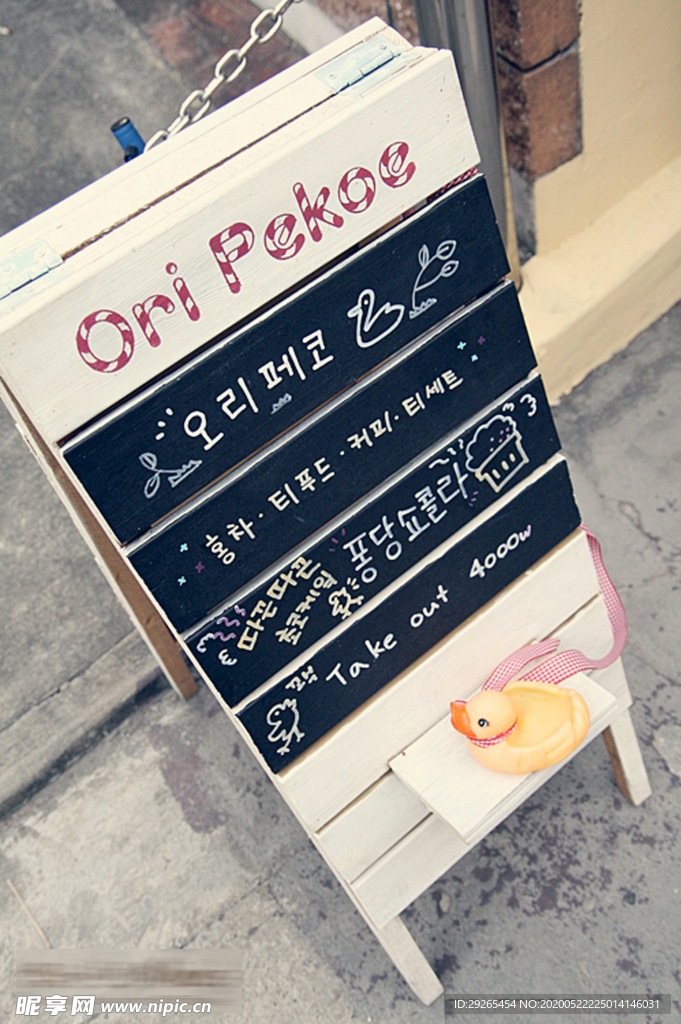 Ori Pekoe
오리페코
홍차·티푸드·커피·티세트
따끈따끈
초코케잌
퐁당쇼콜라
Take out 4000w
昵享网 www.nipic.cn
ID:29265454 NO:20200522225014146031